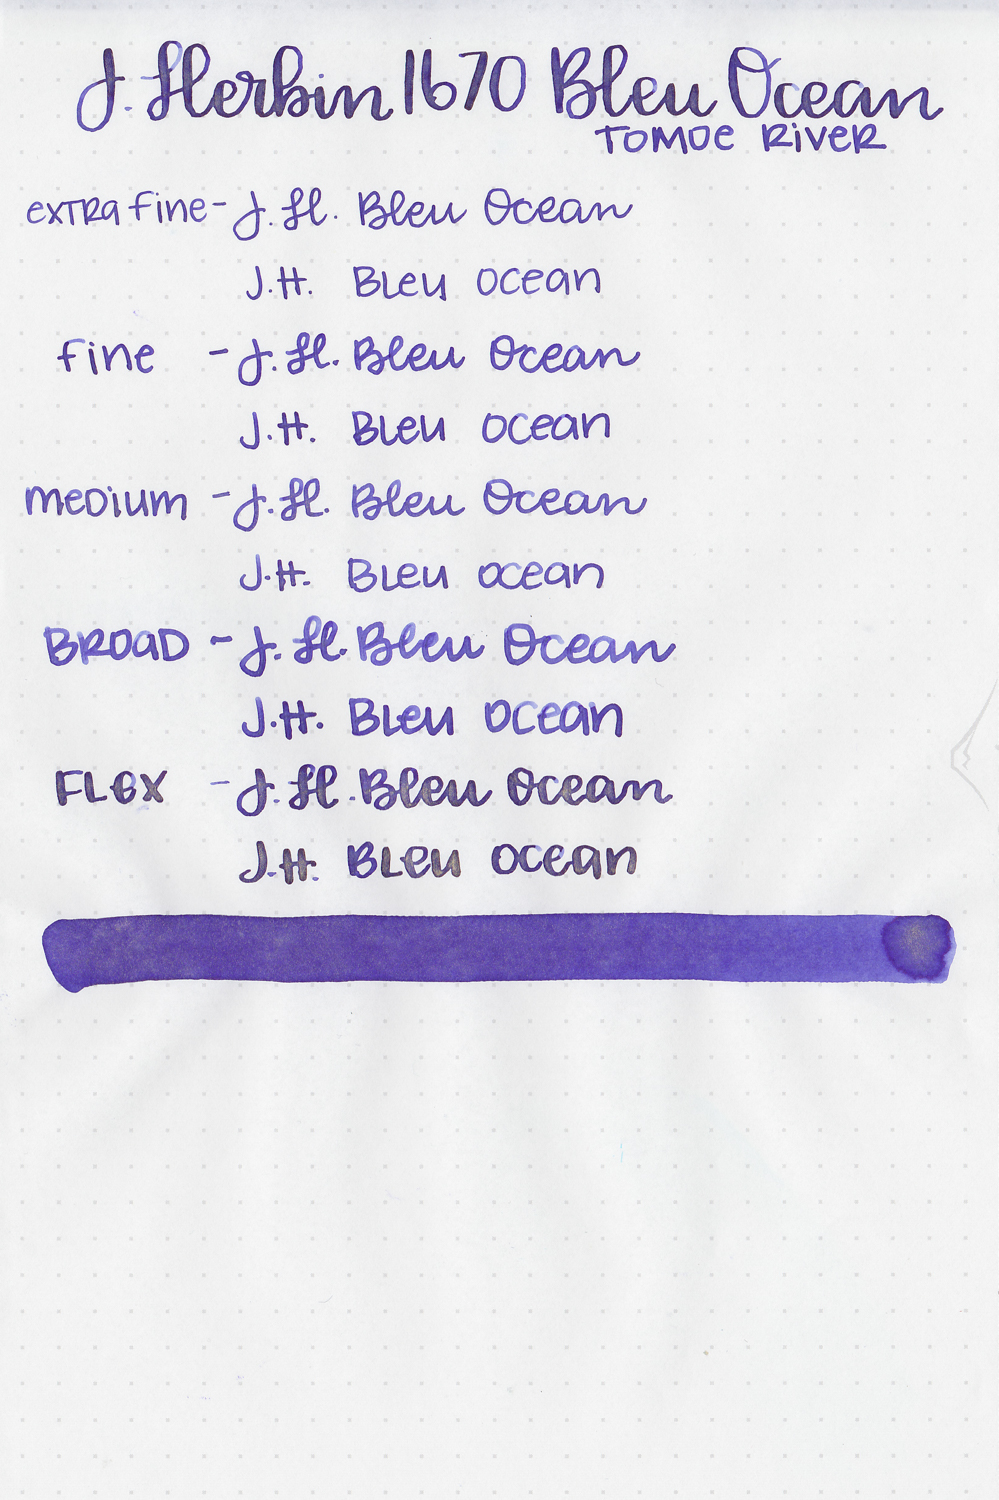 J. Herbin 1670 Bleu Ocean
Tomoe River
extra fine - J. H. Bleu Ocean
J.H. Bleu Ocean
fine - J. H. Bleu Ocean
J.H. Bleu Ocean
medium - J. H. Bleu Ocean
J.H. Bleu Ocean
Broad - J. H. Bleu Ocean
J.H. Bleu Ocean
Flex - J. H. Bleu Ocean
J.H. Bleu Ocean